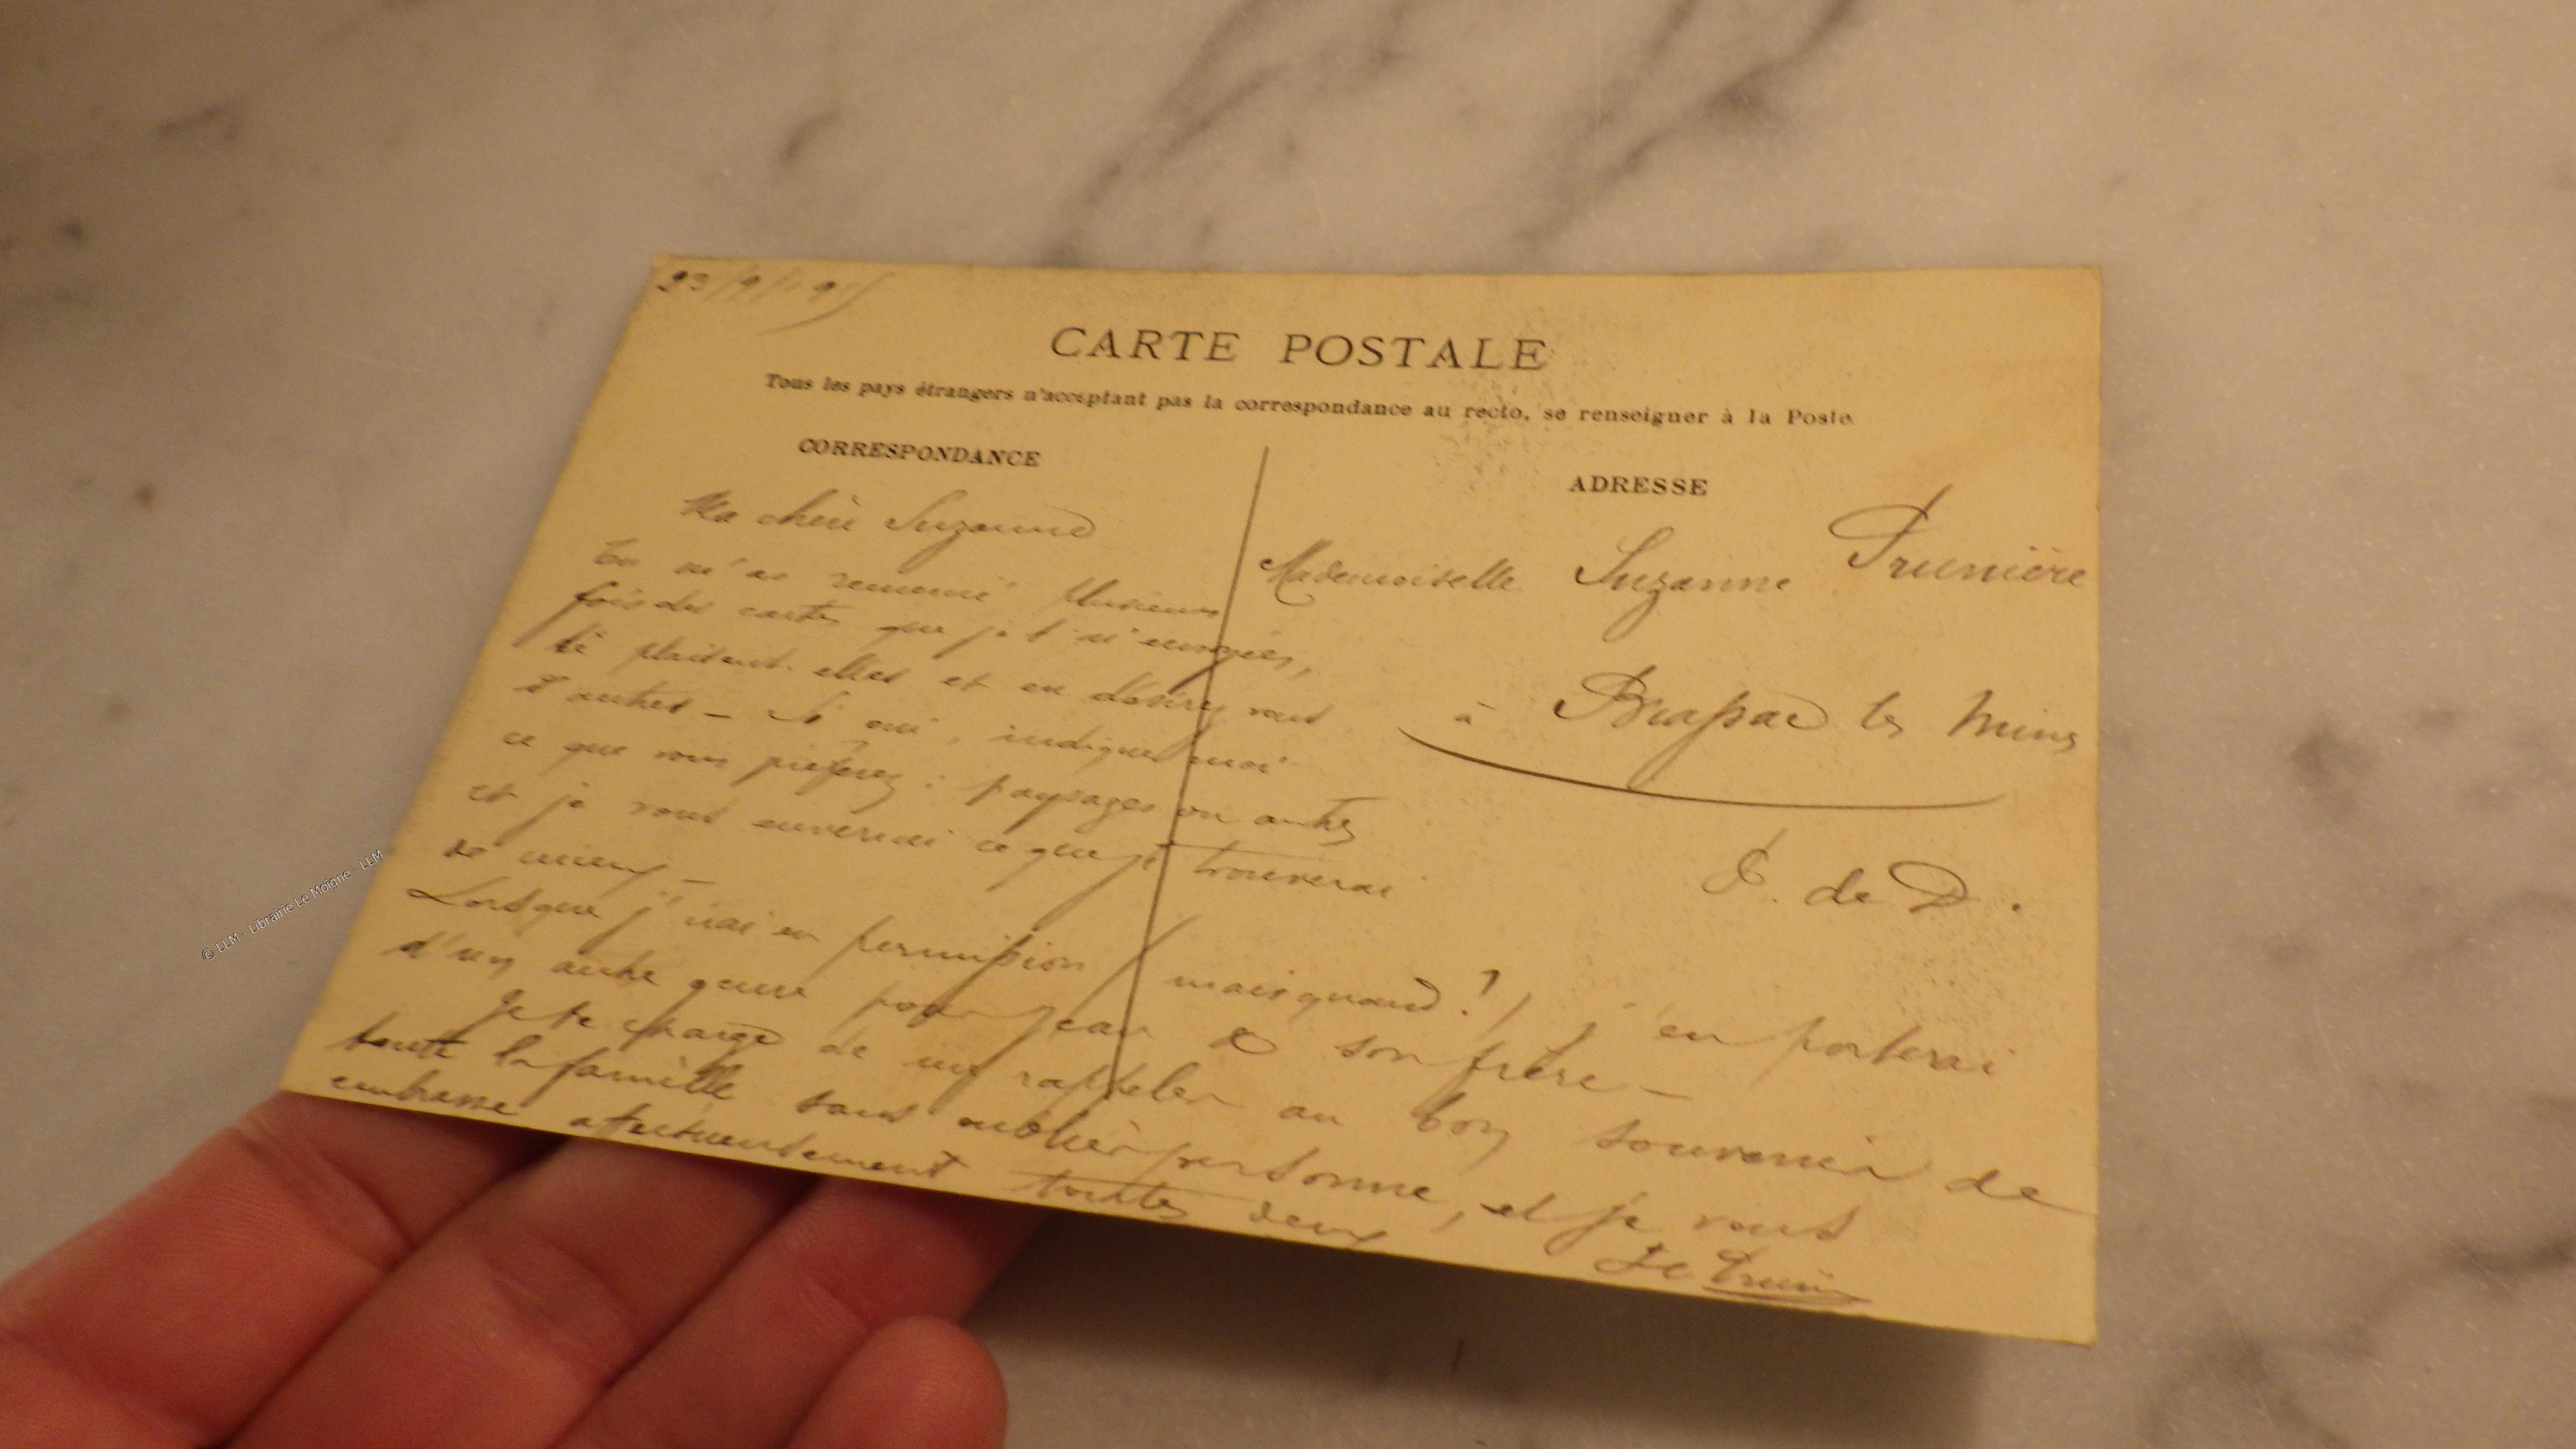 23/9/1915
CARTE POSTALE
Tous les pays étrangers n'acceptant pas la correspondance au recto, se renseigner à la Poste
CORRESPONDANCE
Ma chère Suzanne
Tu m'as remercié plusieurs
fois des cartes que je t'ai envoyées,
te plaisent-elles et en désirez vous
d'autres - Si oui, indiquez moi
ce que vous préférez : paysages ou autres
et je vous enverrai ce que je trouverai
de mieux -
Lorsque j'irai en permission (mais quand ?) j'en porterai
d'un autre genre pour Jean & son frère -
Je te charge de me rappeler au bon souvenir de
toute la famille sans oublier personne, et je vous
embrasse affectueusement toutes deux
ADRESSE
Mademoiselle Suzanne Prunière
à Brassac les Mines
P. de D.
© LLM - Librairie Le Moigne - LLM